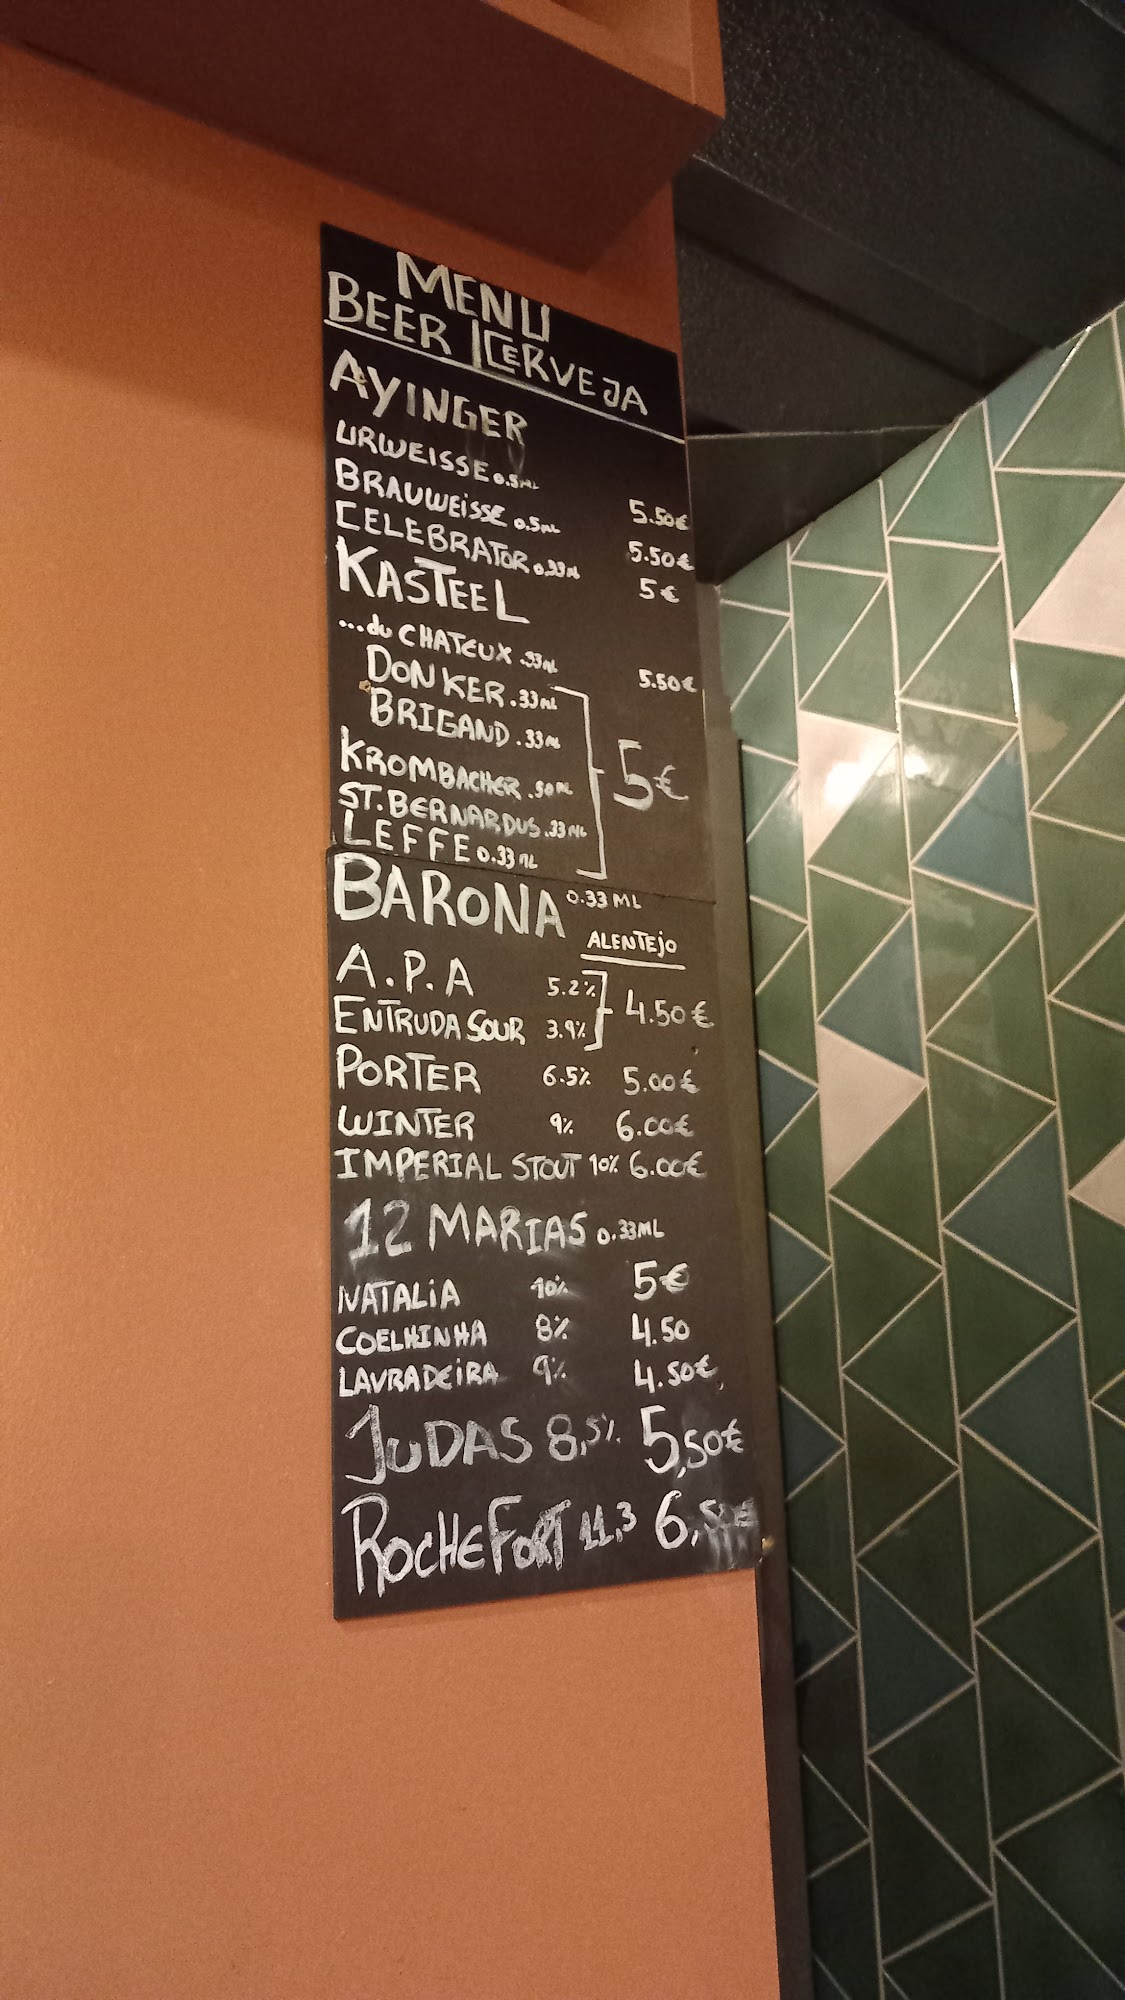 MENU
BEER | CERVEJA
AYINGER
URWEISSE 0.5ML 5.50€
BRAUWEISSE 0.5ML 5.50€
CELEBRATOR 0.33ML 5€
KASTEEL
...du CHATEUX .33ML 5.50€
DONKER .33ML
BRIGAND .33ML
KROMBACHER .50ML 5€
ST. BERNARDUS .33ML
LEFFE 0.33ML
BARONA 0.33ML
ALENTEJO
A.P.A 5.2%
ENTRUDA SOUR 3.9% 4.50€
PORTER 6.5% 5.00€
WINTER 9% 6.00€
IMPERIAL STOUT 10% 6.00€
12 MARIAS 0.33ML
NATALIA 10% 5€
COELHINHA 8% 4.50
LAVRADEIRA 9% 4.50€
JUDAS 8,5% 5,50€
ROCHEFORT 11,3 6,50€